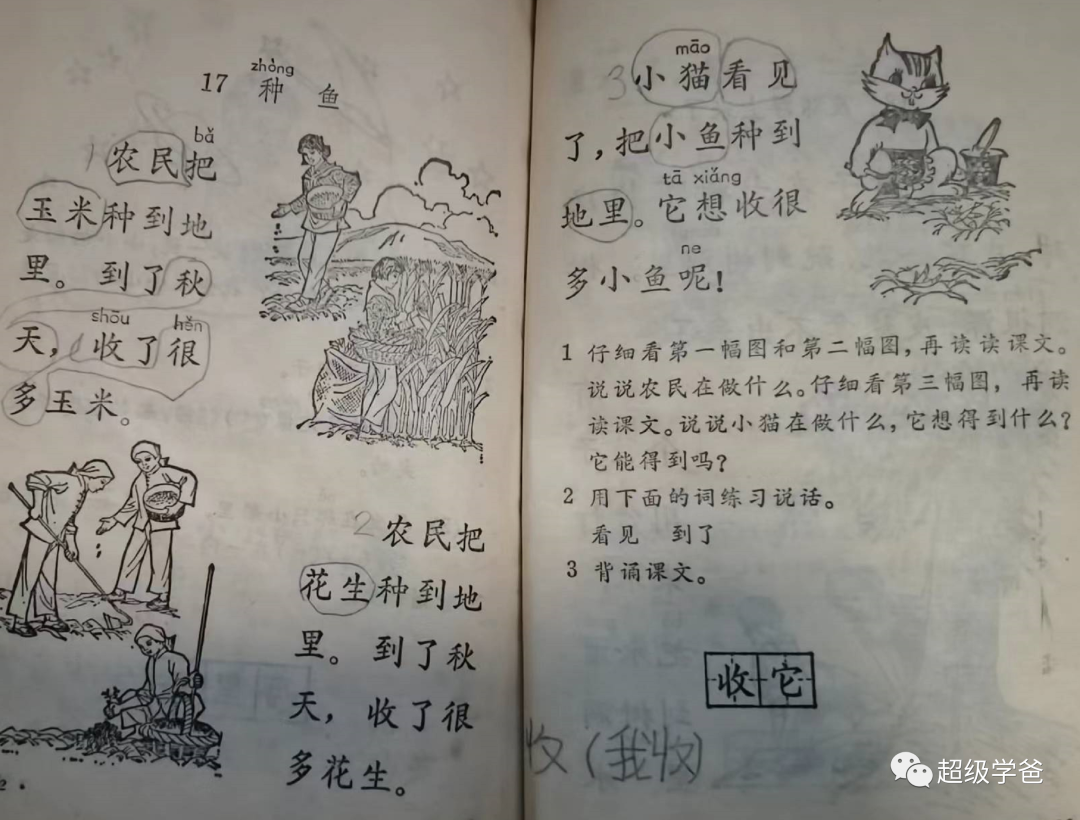 zhǒng
17 种 鱼
1 农民把
bǎ
玉米种到地
里。到了秋
shōu hěn
天，收了很
多玉米。
2 农民把
花生种到地
里。到了秋
天，收了很
多花生。
māo
3 小猫看见
了，把小鱼种到
tā xiǎng
地里。它想收很
ne
多小鱼呢！
1 仔细看第一幅图和第二幅图，再读读课文。
说说农民在做什么。仔细看第三幅图，再读
读课文。说说小猫在做什么，它想得到什么？
它能得到吗？
2 用下面的词练习说话。
看见 到了
3 背诵课文。
收它
收（我收）
超级学爸